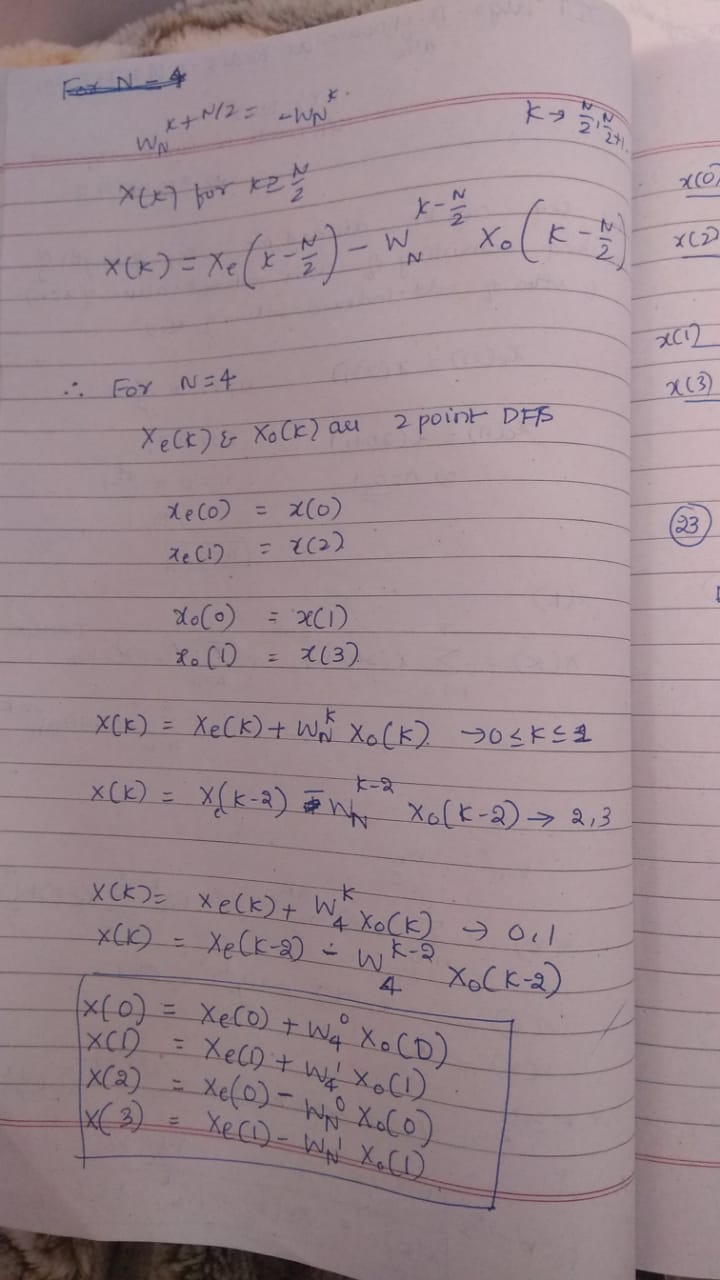 For N = 4
W_N^{K+N/2} = -W_N^K.
K → N/2, N/2+1.
X(K) for K ≥ N/2
X(K) = Xe(K - N/2) - W_N^{K - N/2} Xo(K - N/2)
∴ For N=4
Xe(K) & Xo(K) are 2 point DFTs
xe(0) = x(0)
xe(1) = x(2)
xo(0) = x(1)
xo(1) = x(3)
X(K) = Xe(K) + W_N^K Xo(K) → 0 ≤ K ≤ 1
X(K) = Xe(K-2) - W_N^{K-2} Xo(K-2) → 2,3
X(K) = Xe(K) + W_4^K Xo(K) → 0,1
X(K) = Xe(K-2) - W_4^{K-2} Xo(K-2)
X(0) = Xe(0) + W_4^0 Xo(0)
X(1) = Xe(1) + W_4^1 Xo(1)
X(2) = Xe(0) - W_N^0 Xo(0)
X(3) = Xe(1) - W_N^1 Xo(1)
x(0)
x(2)
x(1)
x(3)
23